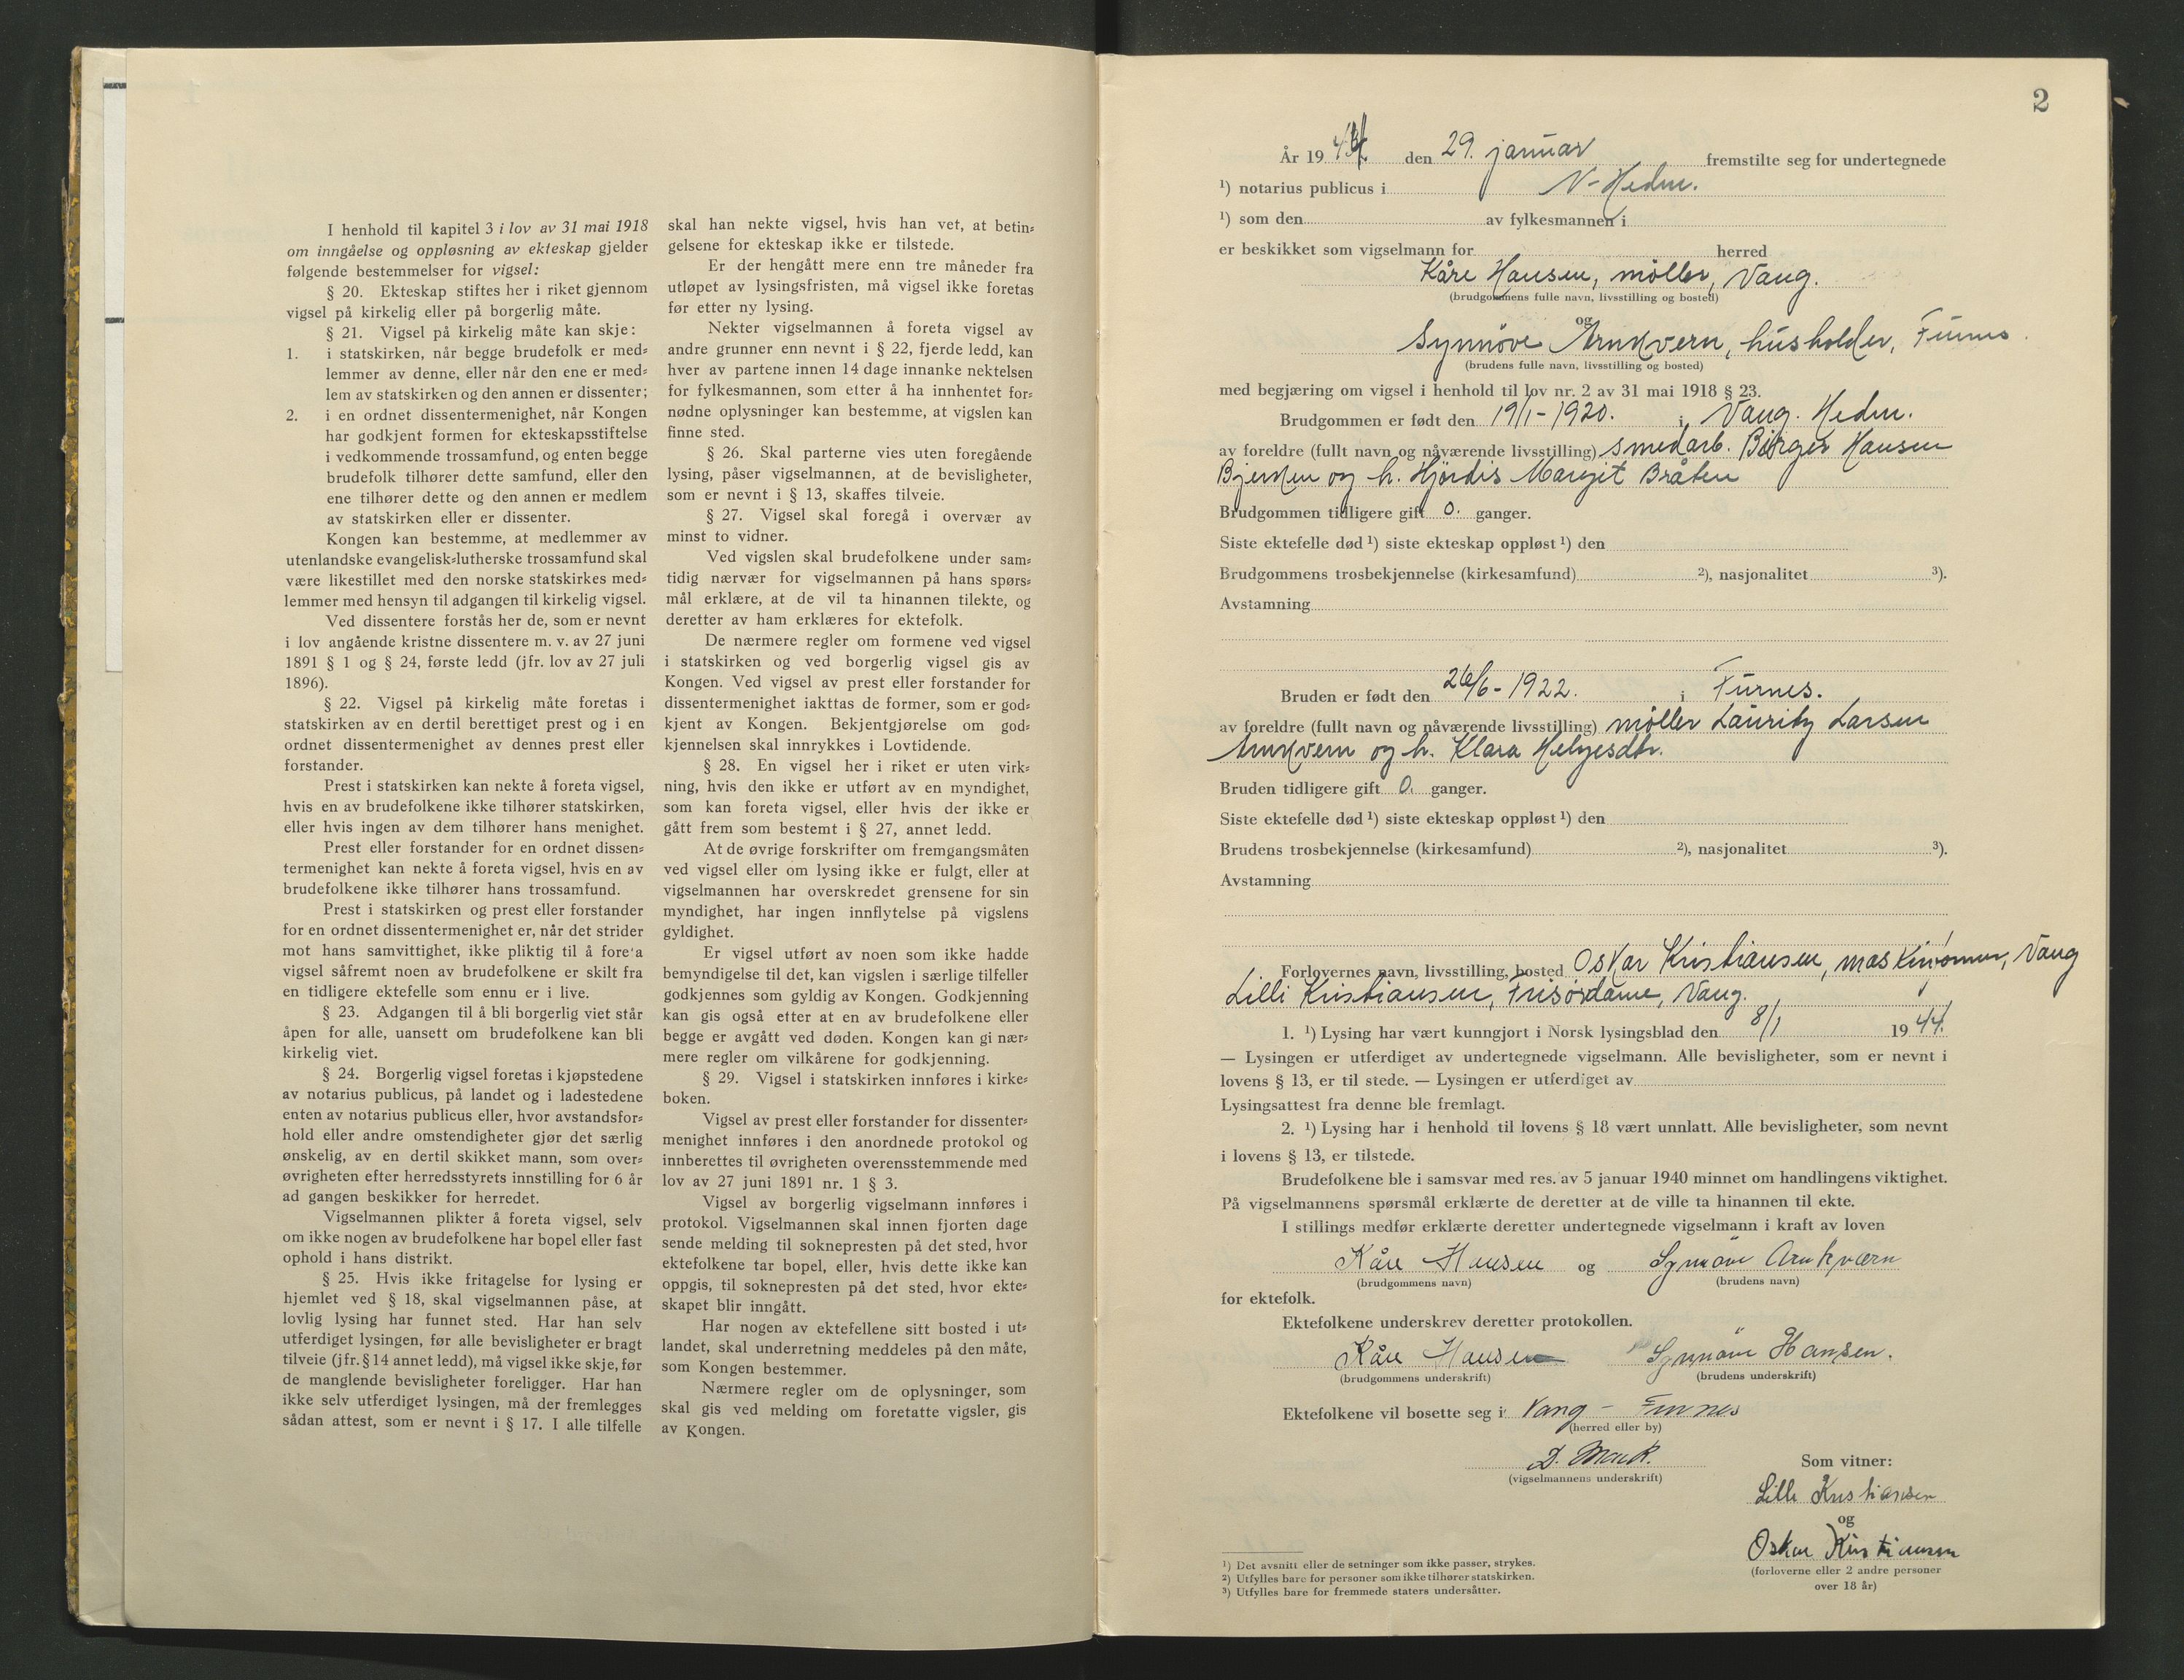 I henhold til kapitel 3 i lov av 31 mai 1918
om inngåelse og oppløsning av ekteskap gjelder
følgende bestemmelser for vigsel:
§ 20. Ekteskap stiftes her i riket gjennom
vigsel på kirkelig eller på borgerlig måte.
§ 21. Vigsel på kirkelig måte kan skje:
1. i statskirken, når begge brudefolk er med-
lemmer av denne, eller når den ene er med-
lem av statskirken og den annen er dissenter;
2. i en ordnet dissentermenighet, når Kongen
har godkjent formen for ekteskapsstiftelse
i vedkommende trossamfund, og enten begge
brudefolk tilhører dette samfund, eller den
ene tilhører dette og den annen er medlem
av statskirken eller er dissenter.
Kongen kan bestemme, at medlemmer av
utenlandske evangelisk-lutherske trossamfund skal
være likestillet med den norske statskirkes med-
lemmer med hensyn til adgangen til kirkelig vigsel.
Ved dissentere forstås her de, som er nevnt
i lov angående kristne dissentere m. v. av 27 juni
1891 § 1 og § 24, første ledd (jfr. lov av 27 juli
1896).
§ 22. Vigsel på kirkelig måte foretas i
statskirken av en dertil berettiget prest og i en
ordnet dissentermenighet av dennes prest eller
forstander.
Prest i statskirken kan nekte å foreta vigsel,
hvis en av brudefolkene ikke tilhører statskirken,
eller hvis ingen av dem tilhører hans menighet.
Prest eller forstander for en ordnet dissen-
termenighet kan nekte å foreta vigsel, hvis en av
brudefolkene ikke tilhører hans trossamfund.
Prest i statskirken og prest eller forstander
for en ordnet dissentermenighet er, når det strider
mot hans samvittighet, ikke pliktig til å foreta
vigsel såfremt noen av brudefolkene er skilt fra
en tidligere ektefelle som ennu er i live.
§ 23. Adgangen til å bli borgerlig viet står
åpen for alle, uansett om brudefolkene kan bli
kirkelig viet.
§ 24. Borgerlig vigsel foretas i kjøpstedene
av notarius publicus, på landet og i ladestedene
enten av notarius publicus eller, hvor avstandsfor-
hold eller andre omstendigheter gjør det særlig
ønskelig, av en dertil skikket mann, som over-
øvrigheten efter herredsstyrets innstilling for 6 år
ad gangen beskikker for herredet.
Vigselmannen plikter å foreta vigsel, selv
om ikke nogen av brudefolkene har bopel eller fast
ophold i hans distrikt.
§ 25. Hvis ikke fritagelse for lysing er
hjemlet ved § 18, skal vigselmannen påse, at
lovlig lysing har funnet sted. Har han selv
utferdiget lysingen, før alle bevisligheter er bragt
tilveie (jfr. § 14 annet ledd), må vigsel ikke skje, før
de manglende bevisligheter foreligger. Har han
ikke selv utferdiget lysingen, må der fremlegges
sådan attest, som er nevnt i § 17. I alle tilfelle
skal han nekte vigsel, hvis han vet, at betin-
gelsene for ekteskap ikke er tilstede.
Er der hengått mere enn tre måneder fra
utløpet av lysingsfristen, må vigsel ikke foretas
før etter ny lysing.
Nekter vigselmannen å foreta vigsel av
andre grunner enn nevnt i § 22, fjerde ledd, kan
hver av partene innen 14 dage innanke nektelsen
for fylkesmannen, som efter å ha innhentet for-
nødne oplysninger kan bestemme, at vigslen kan
finne sted.
§ 26. Skal parterne vies uten foregående
lysing, påser vigselmannen, at de bevisligheter,
som er nevnt i § 13, skaffes tilveie.
§ 27. Vigsel skal foregå i overvær av
minst to vidner.
Ved vigslen skal brudefolkene under sam-
tidig nærvær for vigselmannen på hans spørs-
mål erklære, at de vil ta hinannen tilekte, og
deretter av ham erklæres for ektefolk.
De nærmere regler om formene ved vigsel
i statskirken og ved borgerlig vigsel gis av
Kongen. Ved vigsel av prest eller forstander for
dissentermenighet iakttas de former, som er god-
kjent av Kongen. Bekjentgjørelse om god-
kjennelsen skal innrykkes i Lovtidende.
§ 28. En vigsel her i riket er uten virk-
ning, hvis den ikke er utført av en myndighet,
som kan foreta vigsel, eller hvis der ikke er
gått frem som bestemt i § 27, annet ledd.
At de øvrige forskrifter om fremgangsmåten
ved vigsel eller om lysing ikke er fulgt, eller at
vigselmannen har overskredet grensene for sin
myndighet, har ingen innflytelse på vigslens
gyldighet.
Er vigsel utført av noen som ikke hadde
bemyndigelse til det, kan vigslen i særlige tilfeller
godkjennes som gyldig av Kongen. Godkjenning
kan gis også etter at en av brudefolkene eller
begge er avgått ved døden. Kongen kan gi nær-
mere regler om vilkårene for godkjenning.
§ 29. Vigsel i statskirken innføres i kirke-
boken.
Vigsel av prest eller forstander for dissenter-
menighet innføres i den anordnede protokol og
innberettes til øvrigheten overensstemmende med
lov av 27 juni 1891 nr. 1 § 3.
Vigsel av borgerlig vigselmann innføres i
protokol. Vigselmannen skal innen fjorten dage
sende melding til soknepresten på det sted, hvor
ektefolkene tar bopel, eller, hvis dette ikke kan
oppgis, til soknepresten på det sted, hvor ekte-
skapet blir inngått.
Har nogen av ektefellene sitt bosted i ut-
landet, skal underretning meddeles på den måte,
som Kongen bestemmer.
Nærmere regler om de oplysninger, som
skal gis ved melding om foretatte vigsler, gis
av Kongen.
2
År 19 44. den 29. januar fremstilte seg for undertegnede
1) notarius publicus i N-Hedm.
1) som den av fylkesmannen i
er beskikket som vigselmann for herred
Kåre Hansen, møller, Vang.
(brudgommens fulle navn, livsstilling og bosted)
og
Synnöve Arnkvern, husholder, Furnes.
(brudens fulle navn, livsstilling og bosted)
med begjæring om vigsel i henhold til lov nr. 2 av 31 mai 1918 § 23.
Brudgommen er født den 19/1-1920. i Vang. Hedm.
av foreldre (fullt navn og nåværende livsstilling) smedarb. Birger Hansen
Bjerken og h. Hjördis Margit Bråten
Brudgommen tidligere gift 0. ganger.
Siste ektefelle død 1) siste ekteskap oppløst 1) den
Brudgommens trosbekjennelse (kirkesamfund) 2), nasjonalitet 3).
Avstamning
Bruden er født den 26/6-1922. i Furnes.
av foreldre (fullt navn og nåværende livsstilling) møller Lauritz Larsen
Arnkvern og h. Klara Helgesdtr.
Bruden tidligere gift 0. ganger.
Siste ektefelle død 1) siste ekteskap oppløst 1) den
Brudens trosbekjennelse (kirkesamfund) 2), nasjonalitet 3).
Avstamning
Forlovernes navn, livsstilling, bosted Oskar Kristiansen, Vang
Lilli Kristiansen, Frisördame, Vang.
1. 1) Lysing har vært kunngjort i Norsk lysingsblad den 8/1 19 44.
— Lysingen er utferdiget av undertegnede vigselmann. Alle bevisligheter, som er nevnt i
lovens § 13, er til stede. — Lysingen er utferdiget av
Lysingsattest fra denne ble fremlagt.
2. 1) Lysing har i henhold til lovens § 18 vært unnlatt. Alle bevisligheter, som nevnt
i lovens § 13, er tilstede.
Brudefolkene ble i samsvar med res. av 5 januar 1940 minnet om handlingens viktighet.
På vigselmannens spørsmål erklærte de deretter at de ville ta hinannen til ekte.
I stillings medfør erklærte deretter undertegnede vigselmann i kraft av loven
Kåre Hansen og Synnöve Arnkværn
(brudgommens navn) (brudens navn)
for ektefolk.
Ektefolkene underskrev deretter protokollen.
Kåre Hansen Synnöve Hansen.
(brudgommens underskrift) (brudens underskrift)
Ektefolkene vil bosette seg i Vang - Furnes
(herred eller by)
D. Mack.
(vigselmannens underskrift)
Som vitner:
Lilli Kristiansen
og
Oskar Kristiansen
(forloverne eller 2 andre personer
over 18 år)
1) Det avsnitt eller de setninger som ikke passer, strykes.
2) Utfylles bare for personer som ikke tilhører statskirken.
3) Utfylles bare for fremmede staters undersåtter.